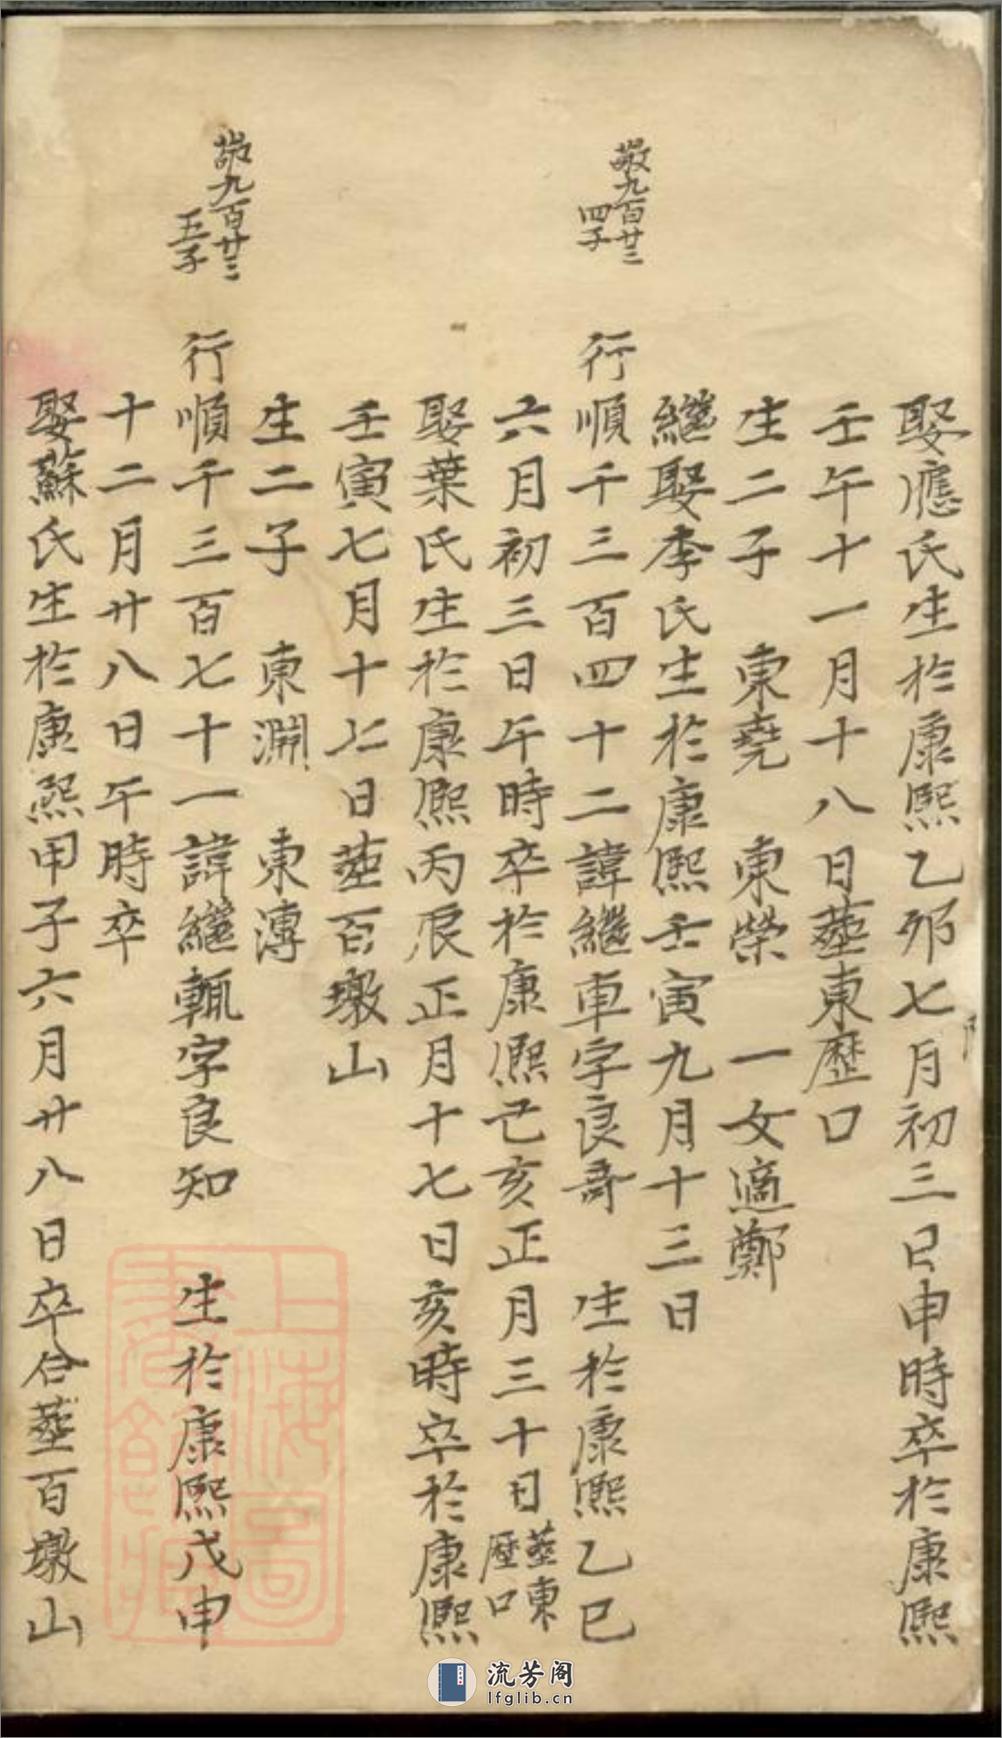 娶應氏生於康熙乙夘七月初三日申時卒於康熙
壬午十一月十八日塟東歷口
生二子 東堯 東榮 一女適鄭
繼娶李氏生於康熙壬寅九月十三日
敬九百廿三
四子
行順千三百四十二諱繼車字良哥 生於康熙乙巳
六月初三日午時卒於康熙己亥正月三十日塟東歷口
娶葉氏生於康熙丙辰正月十七日亥時卒於康熙
壬寅七月十七日塟百墩山
生二子 東淵 東溥
敬九百廿三
五子
行順千三百七十一諱繼輒字良知 生於康熙戊申
十二月廿八日午時卒
娶蘇氏生於康熙甲子六月廿八日卒合塟百墩山
上海圖書館藏
流芳阁
lfglib.cn